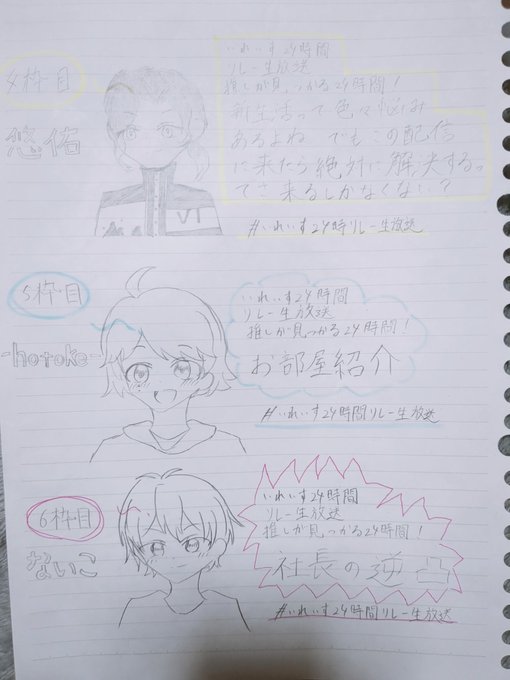 4枠目
悠佑
いれいす24時間
リレー生放送
推しが見つかる24時間!
新生活って色々悩み
あるよね でもこの配信
に来たら絶対に解決するっ
てさ 来るしかなくない?
#いれいす24時間リレー生放送
VT
5枠目
-hotoke-
いれいす24時間
リレー生放送
推しが見つかる24時間!
お部屋紹介
#いれいす24時間リレー生放送
6枠目
ないこ
いれいす24時間
リレー生放送
推しが見つかる24時間!
社長の逆凸
#いれいす24時間リレー生放送